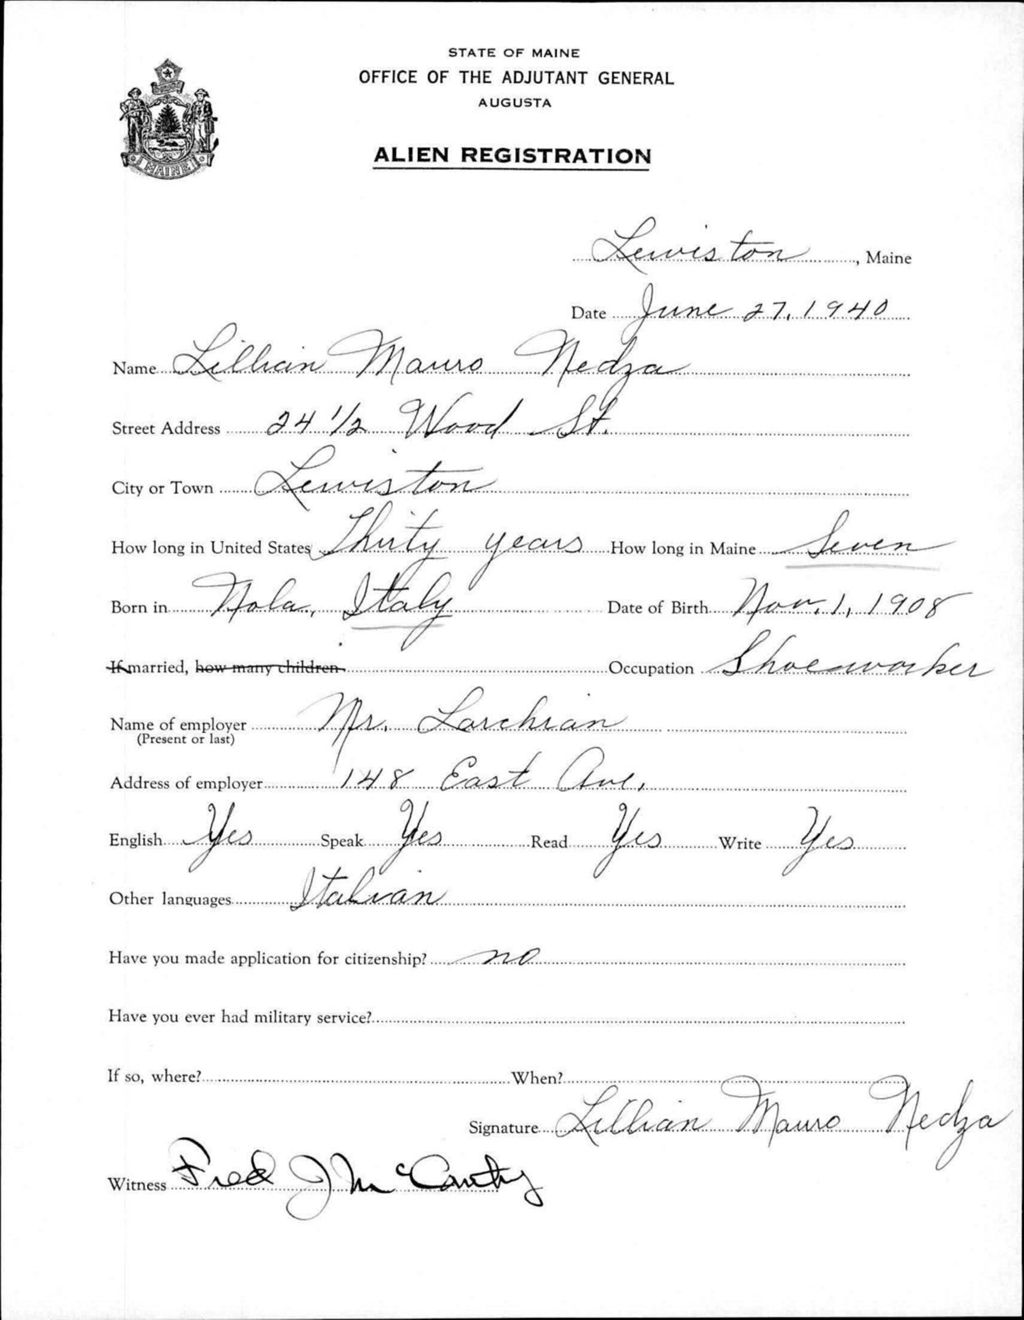 STATE OF MAINE
OFFICE OF THE ADJUTANT GENERAL
AUGUSTA
ALIEN REGISTRATION
MAINE
Lewiston, Maine
Date June 27, 1940
Name Lillian Mauro Nedza
Street Address 24 1/2 Wood St.
City or Town Lewiston
How long in United States Thirty years How long in Maine Seven
Born in Nola, Italy Date of Birth Nov. 1, 1908
If married, how many children Occupation Shoeworker
Name of employer Mr. Larchian
(Present or last)
Address of employer 148 East Ave.
English Yes Speak Yes Read Yes Write Yes
Other languages Italian
Have you made application for citizenship? no
Have you ever had military service?
If so, where? When?
Signature Lillian Mauro Nedza
Witness Fred J McCarthy